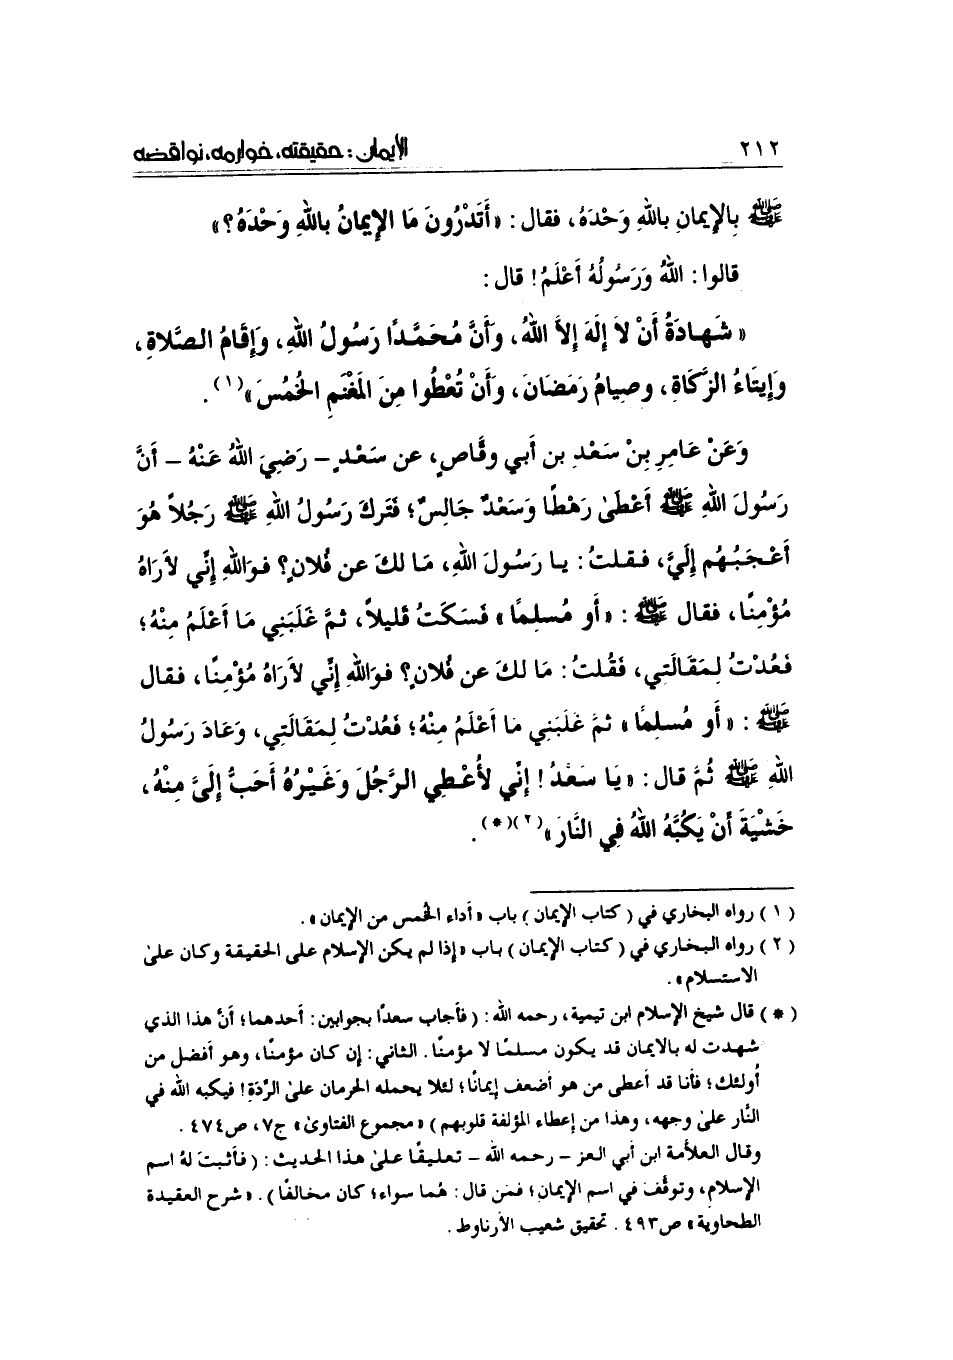 ٢١٢ الإيمان: حقيقته، خوارمه، نواقضه
ﷺ بِالإيمانِ بِاللهِ وَحْدَهُ، فقال: «أَتَدْرُونَ مَا الإيمانُ بِاللهِ وَحْدَهُ؟»
قالوا: اللهُ وَرَسُولُهُ أَعْلَمُ! قال:
«شَهادَةُ أَنْ لاَ إلَهَ إلاَّ اللهُ، وَأَنَّ مُحَمَّدًا رَسُولُ اللهِ، وَإقَامُ الصَّلاةِ،
وَإيتَاءُ الزَّكَاةِ، وصِيامُ رَمَضَانَ، وَأَنْ تُعْطُوا مِنَ المَغْنَمِ الخُمُسَ»(١).
وَعَنْ عَامِرِ بِنْ سَعْدِ بن أَبي وقَّاصٍ، عن سَعْدٍ – رَضِيَ اللهُ عَنْهُ – أَنَّ
رَسُولَ اللهِ ﷺ أَعْطَىٰ رَهْطًا وَسَعْدٌ جَالِسٌ؛ فَتَركَ رَسُولُ اللهِ ﷺ رَجُلاً هُوَ
أَعْجَبُهُم إلَيَّ، فقلتُ: يا رَسُولَ اللهِ، مَا لكَ عن فُلانٍ؟ فوَاللهِ إنِّي لأَرَاهُ
مُؤْمِنًا، فقال ﷺ: «أَو مُسلِمًا» فَسَكَتُ قَليلاً، ثمَّ غَلَبَنِي مَا أَعْلَمُ مِنْهُ؛
فَعُدْتُ لِمَقَالَتِي، فَقُلتُ: مَا لكَ عن فُلانٍ؟ فوَاللهِ إنِّي لأَرَاهُ مُؤْمِنًا، فقال
ﷺ: «أَو مُسلِمًا» ثمَّ غَلَبَنِي مَا أَعْلَمُ مِنْهُ؛ فَعُدْتُ لِمَقَالَتِي، وَعَادَ رَسُولُ
اللهِ ﷺ ثُمَّ قال: «يَا سَعْدُ! إنِّي لأُعْطِي الرَّجُلَ وَغَيْرُهُ أَحَبُّ إلَيَّ مِنْهُ،
خَشْيَةَ أَنْ يَكُبَّهُ اللهُ فِي النَّارِ»(٢)(*).
(١) رواه البخاري في (كتاب الإيمان) باب «أداء الخُمس من الإيمان».
(٢) رواه البخاري في (كتاب الإيمان) باب «إذا لم يكن الإسلام على الحقيقة وكان علىٰ
الاستسلام».
(*) قال شيخ الإسلام ابن تيمية، رحمه الله: (فأجاب سعدًا بجوابين: أحدهما؛ أنَّ هذا الذي
شهدت له بالايمان قد يكون مسلمًا لا مؤمنًا. الثاني: إن كان مؤمنًا، وهو أفضل من
أولئك؛ فأنا قد أعطى من هو أضعف إيمانًا؛ لئلا يحمله الحرمان علىٰ الرِّدَة! فيكبه الله في
النَّار علىٰ وجهه، وهذا من إعطاء المؤلفة قلوبهم) «مجموع الفتاوىٰ» ج٧، ص٤٧٤.
وقال العلاَّمة ابن أبي العز – رحمه الله – تعليقًا علىٰ هذا الحديث: (فأثبتَ لهُ اسم
الإسلام، وتوقَّف في اسم الإيمان؛ فمن قال: هُما سواء؛ كان مخالفًا). «شرح العقيدة
الطحاوية» ص٤٩٣. تحقيق شعيب الأرناوط.